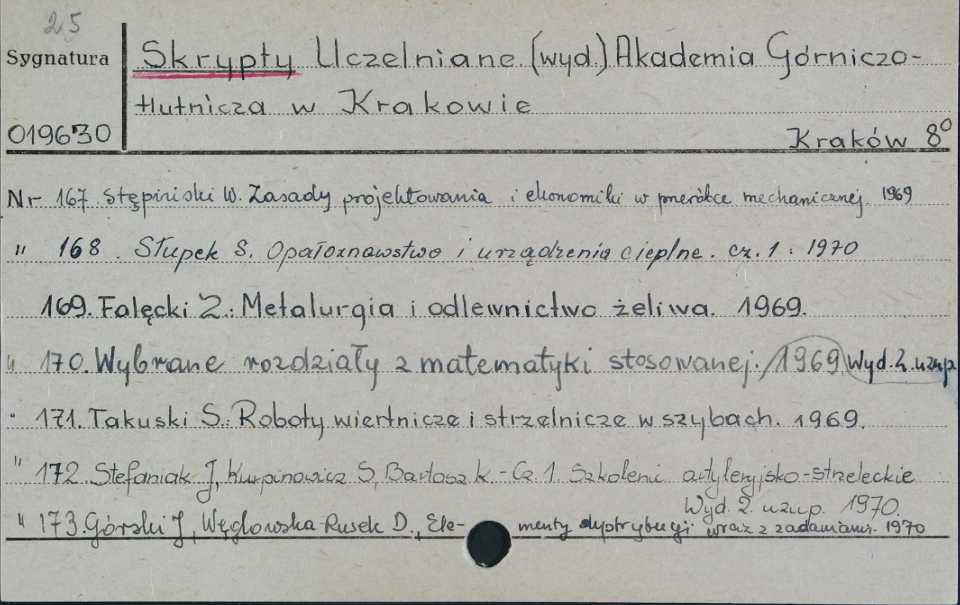 25
Sygnatura
019630
Skrypty Uczelniane. (wyd.) Akademia Górniczo-
Hutnicza w Krakowie
Kraków 8°
Nr 167 Stępiński W. Zasady projektowania i ekonomiki w przeróbce mechanicznej. 1969
" 168. Słupek S. Opałoznawstwo i urządzenia cieplne. cz. 1. 1970
169. Falęcki Z.: Metalurgia i odlewnictwo żeliwa. 1969.
" 170. Wybrane rozdziały z matematyki stosowanej. / 1969 Wyd. 2. uzup
" 171. Takuski S.: Roboty wiertnicze i strzelnicze w szybach. 1969.
" 172. Stefaniak J, Kurpinowicz S, Bartosz K. - Cz. 1. Szkoleni artyleryjsko-strzeleckie
Wyd. 2. uzup. 1970.
" 173. Górski J, Węglowska-Rusek D., Ele- menty dystrybucji wraz z zadaniami. 1970